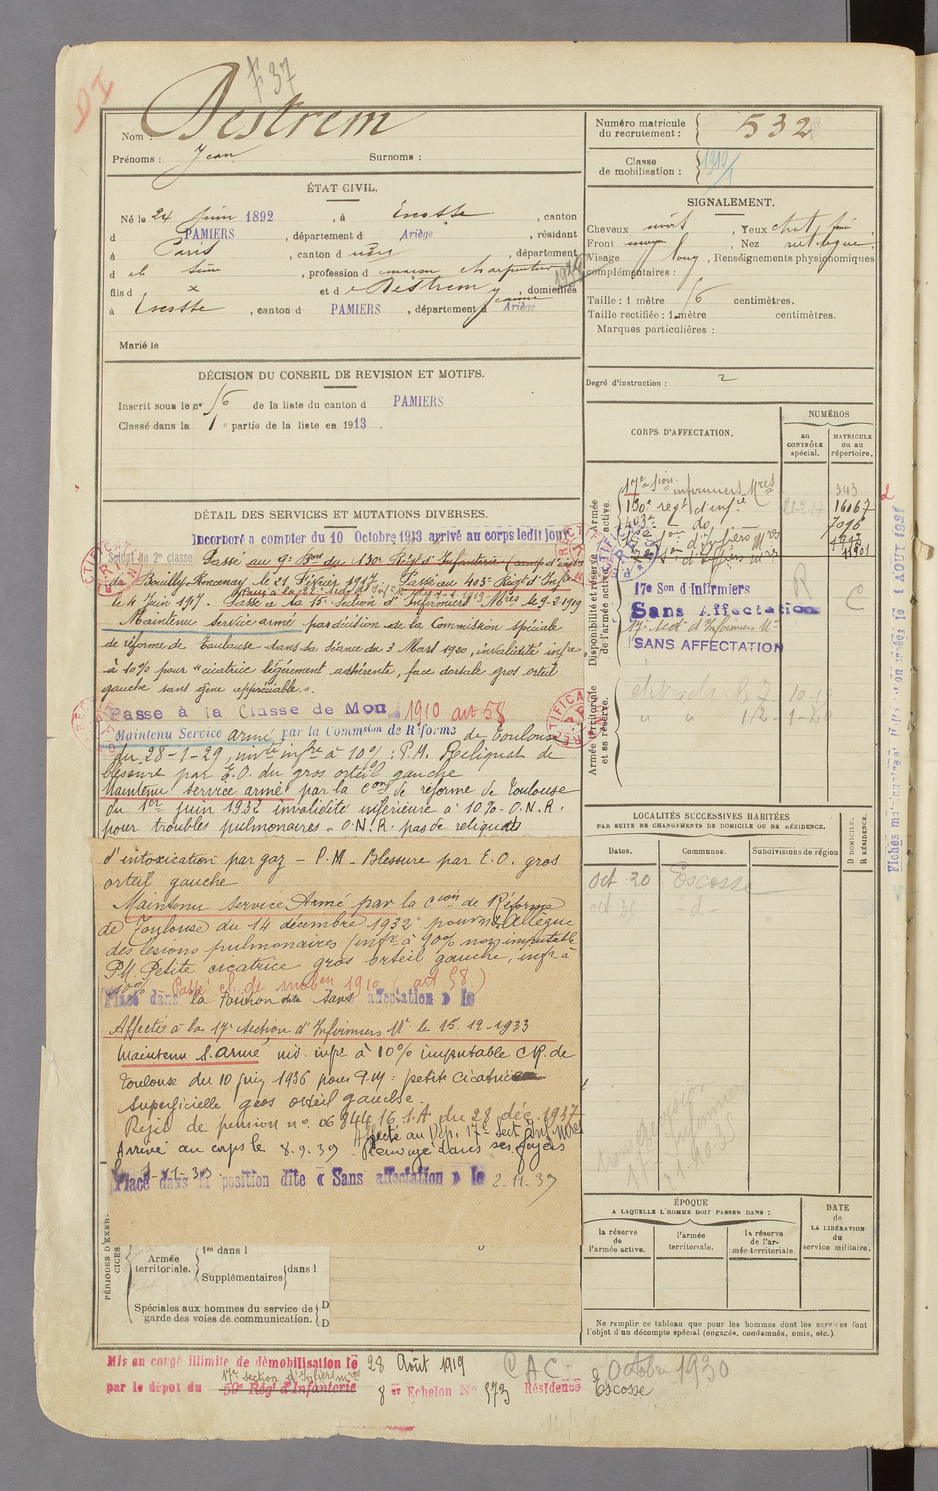 F 37
Nom : Destrem
Prénoms : Jean Surnoms :
Numéro matricule du recrutement : 532
Classe de mobilisation : 1910/1
ÉTAT CIVIL.
Né le 24 juin 1892, à Escosse, canton
d PAMIERS, département d Ariège, résidant
à Paris, canton d, département
d la Seine, profession de maçon Charpentier
fils d x et de Destrem Jeanne, domiciliés
à Escosse, canton d PAMIERS, département d Ariège
Marié le
SIGNALEMENT.
Cheveux noirs, Yeux chat.
Front moyen, Nez rectiligne,
Visage long, Renseignements physionomiques
complémentaires :
Taille : 1 mètre 56 centimètres.
Taille rectifiée : 1 mètre centimètres.
Marques particulières :
Degré d'instruction : 2
DÉCISION DU CONSEIL DE REVISION ET MOTIFS.
Inscrit sous le n° 56 de la liste du canton d PAMIERS
Classé dans la 1e partie de la liste en 1913.
DÉTAIL DES SERVICES ET MUTATIONS DIVERSES.
Incorporé a compter du 10 Octobre 1913 arrivé au corps ledit jour
Soldat de 2e classe Passé au 9e Bon du 130e Régt d'Infanterie (camp d'instr
de Bouilly-Roncenay le 21 Février 1917. Passé au 403e Régt d'Infie
le 4 Juin 1917. Passé à la 15e Section d'Infirmiers Mres le 9-2-1919
Maintenu service armé par décision de la Commission spéciale
de réforme de Toulouse dans sa séance du 3 Mars 1920, invalidité infre
à 10% pour « cicatrice légèrement adhérente, face dorsale gros orteil
gauche sans gêne appréciable ».
Passe à la Classe de Mon 1910 art 58
Maintenu Service armé par la Commsion de Réforme de Toulouse
du 28-1-29, invté infre à 10% : P.M. Reliquat de
blessure par E.O. du gros orteil gauche
Maintenu service armé par la Con de réforme de Toulouse
du 1er juin 1932 invalidité inférieure à 10% - O.N.R.
pour troubles pulmonaires - O.N.R. pas de reliquats
d'intoxication par gaz - P.M - Blessure par E.O. gros
orteil gauche
Maintenu service Armé par la Cion de Réforme
de Toulouse du 14 décembre 1932 pour Allègue
des lésions pulmonaires (infre à 90% non imputable
P.M. Petite cicatrice gros orteil gauche, infre à
10% Passé cl. de mob en 1910 art 58.)
Placé dans la Position dite Sans affectation » le
Affecté à la 17e section d'Infirmiers Mres le 15-12-1933
Maintenu S. armé, ind. infre à 10% imputable CR de
Toulouse du 10 juin 1936 pour P.M : petite cicatrice
superficielle gros orteil gauche.
Rejet de pension no. 06 844 16 1.A du 28 déc. 1937
Affecté au Dép. 17e Sect Inf. Mres
Arrivé au corps le 8.9.39 Renvoyé dans ses foyers
le 1-11-39
Placé dans la position dite « Sans affectation » le 2-11-39
CORPS D'AFFECTATION.
NUMÉROS
au CONTRÔLE spécial.
MATRICULE ou au répertoire.
Armée active.
17e Son infirmiers Mres 343
130e régt d'infie 16067
403e do 7096
Disponibilité et réserve de l'armée active.
17e Son d'Infirmiers R C
Sans Affectation
17e Sect. d'Infirmiers Mres
SANS AFFECTATION
Armée territoriale et sa réserve.
LOCALITÉS SUCCESSIVES HABITÉES
PAR SUITE DE CHANGEMENTS DE DOMICILE OU DE RÉSIDENCE.
Dates. Communes. Subdivisions de région D DOMICILE. R RÉSIDENCE.
Oct 20 Escosse
oct 35 d
ÉPOQUE
A LAQUELLE L'HOMME DOIT PASSER DANS :
la réserve de l'armée active.
l'armée territoriale.
la réserve de l'armée territoriale.
DATE de LA LIBÉRATION du service militaire.
Ne remplir ce tableau que pour les hommes dont les services font
l'objet d'un décompte spécial (engagés, condamnés, omis, etc.).
PÉRIODES D'EXERCICES.
Armée territoriale. 1re dans l
Supplémentaires dans l
Spéciales aux hommes du service de garde des voies de communication. D D
Mis en congé illimité de démobilisation le 28 Août 1919
17e Section d'Infirmiers
par le dépôt du 59e Rég d'Infanterie 8er Echelon No 573 Résidence Escosse
CAC - 2 Octobre 1930